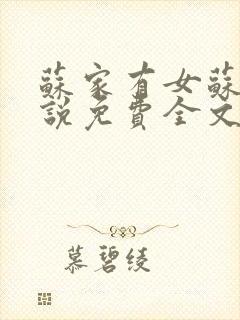 蘇家有女蘇
說免費全文
慕碧綾